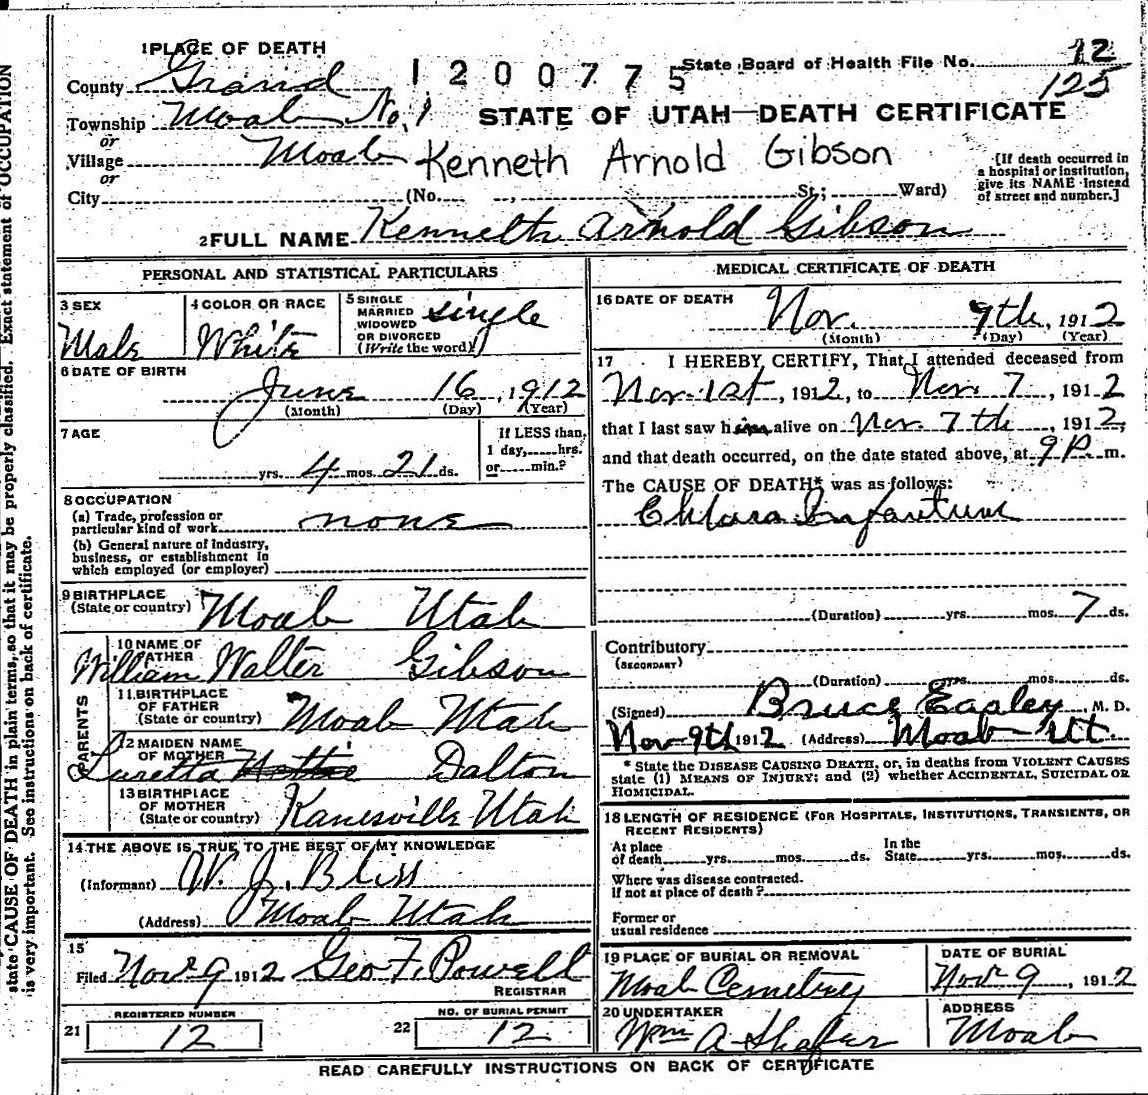 1 PLACE OF DEATH
County Grand
1200775
State Board of Health File No. 12
125
Township Moab No. 1
STATE OF UTAH—DEATH CERTIFICATE
or
Village Moab
Kenneth Arnold Gibson
or
City (No. , St.; Ward)
[If death occurred in
a hospital or institution,
give its NAME instead
of street and number.]
2 FULL NAME Kenneth Arnold Gibson
PERSONAL AND STATISTICAL PARTICULARS
3 SEX
Male
4 COLOR OR RACE
White
5 SINGLE
MARRIED
WIDOWED
OR DIVORCED
(Write the word)
single
6 DATE OF BIRTH
June 16, 1912
(Month) (Day) (Year)
7 AGE
yrs. 4 mos. 21 ds.
If LESS than
1 day, hrs.
or min.?
8 OCCUPATION
(a) Trade, profession or
particular kind of work none
(b) General nature of industry,
business, or establishment in
which employed (or employer)
9 BIRTHPLACE
(State or country) Moab Utah
PARENTS
10 NAME OF
FATHER
William Walter Gibson
11 BIRTHPLACE
OF FATHER
(State or country) Moab Utah
12 MAIDEN NAME
OF MOTHER
Luretta Hattie Dalton
13 BIRTHPLACE
OF MOTHER
(State or country) Kanesville Utah
14 THE ABOVE IS TRUE TO THE BEST OF MY KNOWLEDGE
(Informant) W. J. Bliss
(Address) Moab Utah
15
Filed Nov 9 1912 Geo F. Powell
REGISTRAR
21 REGISTERED NUMBER
12
22 NO. OF BURIAL PERMIT
12
MEDICAL CERTIFICATE OF DEATH
16 DATE OF DEATH
Nov. 9th, 1912
(Month) (Day) (Year)
17 I HEREBY CERTIFY, That I attended deceased from
Nov. 1st, 1912, to Nov 7, 1912
that I last saw him alive on Nov. 7th, 1912,
and that death occurred, on the date stated above, at 9 P. m.
The CAUSE OF DEATH* was as follows:
Infantum
(Duration) yrs. mos. 7 ds.
Contributory
(SECONDARY)
(Duration) yrs. mos. ds.
(Signed) Bruce Easley, M. D.
Nov 9th 1912 (Address) Moab Ut.
* State the DISEASE CAUSING DEATH, or, in deaths from VIOLENT CAUSES
state (1) MEANS OF INJURY; and (2) whether ACCIDENTAL, SUICIDAL OR
HOMICIDAL.
18 LENGTH OF RESIDENCE (FOR HOSPITALS, INSTITUTIONS, TRANSIENTS, OR
RECENT RESIDENTS)
At place
of death yrs. mos. ds.
In the
State yrs. mos. ds.
Where was disease contracted.
If not at place of death?
Former or
usual residence
19 PLACE OF BURIAL OR REMOVAL
Moab Cemetery
DATE OF BURIAL
Nov 9, 1912
20 UNDERTAKER
Wm A Shafer
ADDRESS
Moab
READ CAREFULLY INSTRUCTIONS ON BACK OF CERTIFICATE
state CAUSE OF DEATH in plain terms, so that it may be properly classified. Exact statement of OCCUPATION
is very important. See instructions on back of certificate.